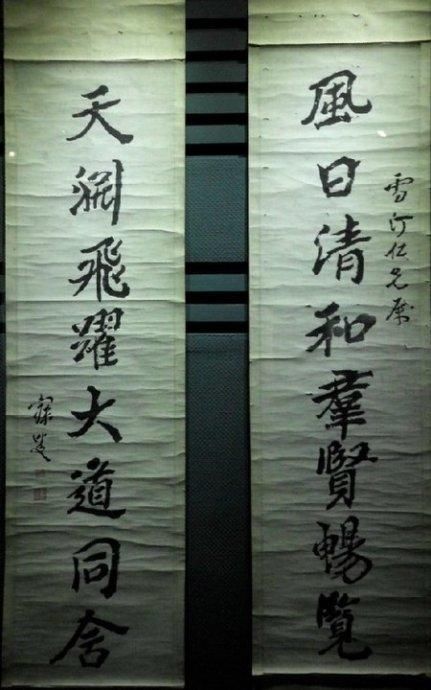 風日清和羣賢暢覽
雪汀仁兄屬
天淵飛躍大道同含
寐叟